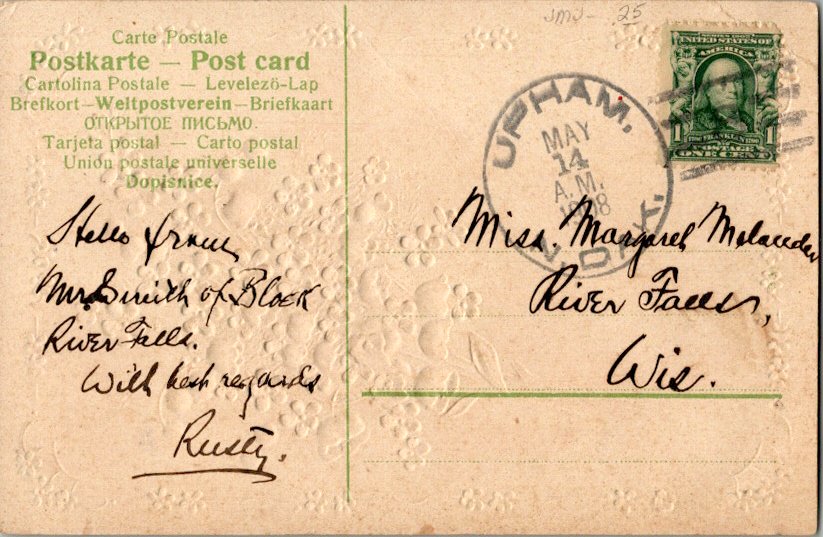 Carte Postale
Postkarte — Post card
Cartolina Postale — Levelező-Lap
Brefkort—Weltpostverein—Briefkaart
ОТКРЫТОЕ ПИСЬМО.
Tarjeta postal — Carto postal
Union postale universelle
Dopisnice.
Hello from
Mr. Smith of Block
River Falls.
With best regards
Rusty.
25
UPHAM.
MAY
14
A.M.
1908
N. DAK.
SERIES 1902
UNITED STATES OF
AMERICA
1790 FRANKLIN 1790
1 POSTAGE 1
ONE CENT
Miss. Margaret Melander
River Falls,
Wis.